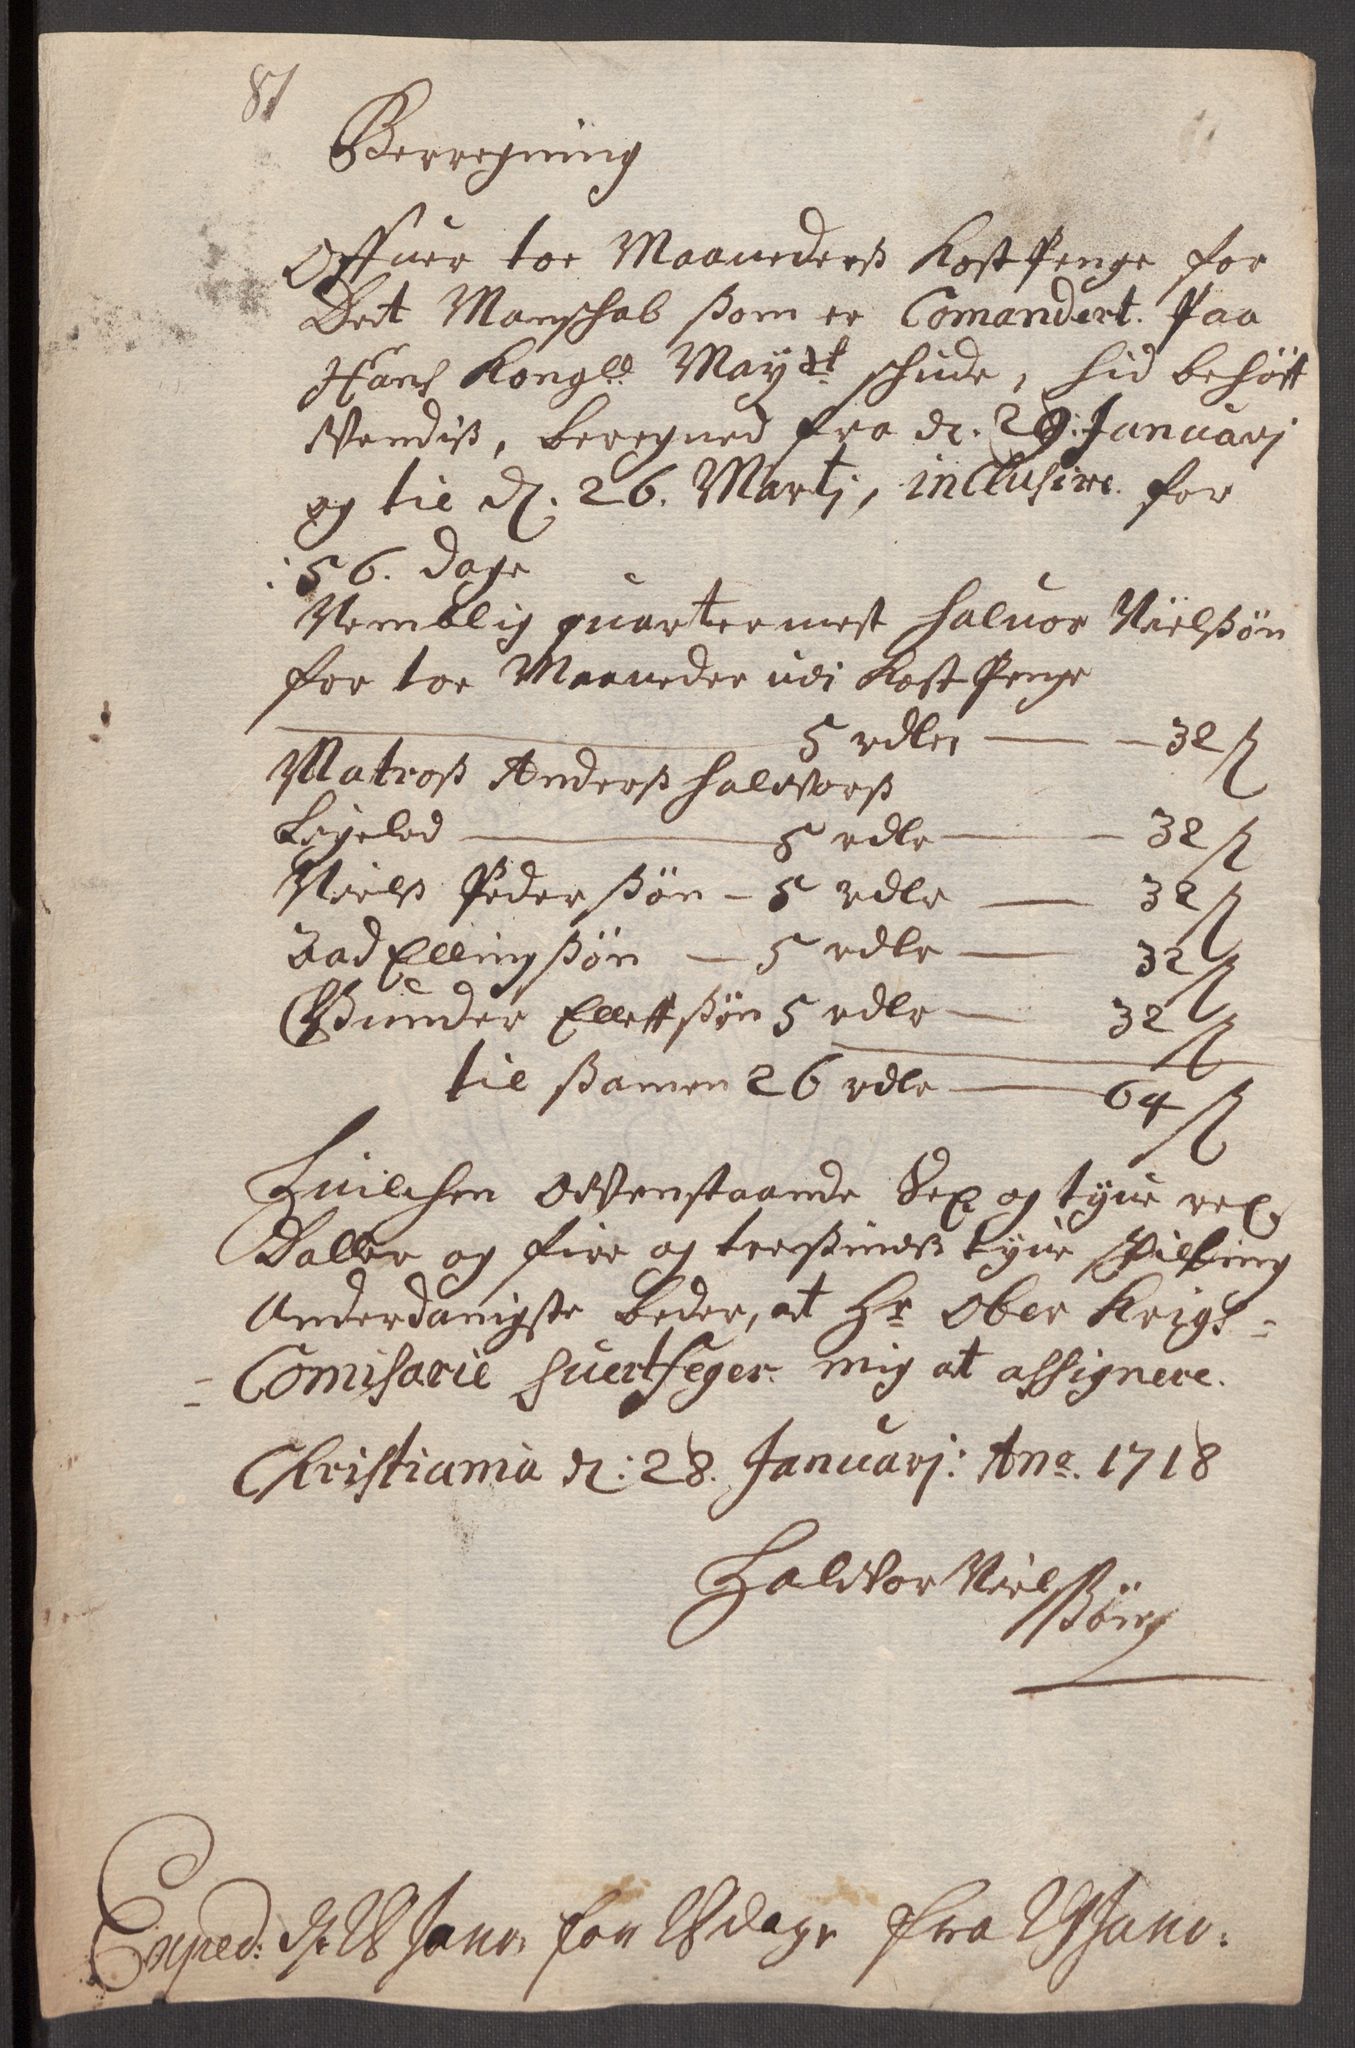 81
Berregning
Offuer toe Maanederß Kost Penge for
Det Manschab ßom er Comandert. Paa
Hans Kongl: May:tt schude, hid behöff
Vendiß, beregned fra d. 29: Januarj
og til d. 26. Martj, inclusive. for
:56. dage
Nemblig quarteermest Haluor Nielßön
for toe Maaneder udi Kost Penge
5 rdler — 32 ß
Matroß Anderß Halworß
Ligeled — 5 rdlr — 32 ß
Nielß Pederßön — 5 rdlr — 32 ß
Aad Ellingßön — 5 rdlr — 32 ß
Gunder Elleffßön 5 rdlr — 32 ß
til ßamen 26 rdlr — 64 ß
Huilchen owenstaande Sex og tyue rex
Daller og fire og treßindß tyue Skilling
Underdanigste beder, at Hr Ober Krigs-
Comisarie Huertseger mig at assignere.
Christiania d: 28. Januarj: Ano. 1718
Halwor Niel
ßön
Exped: d. 28 Janv. for 28 dage fra 29 Janv.